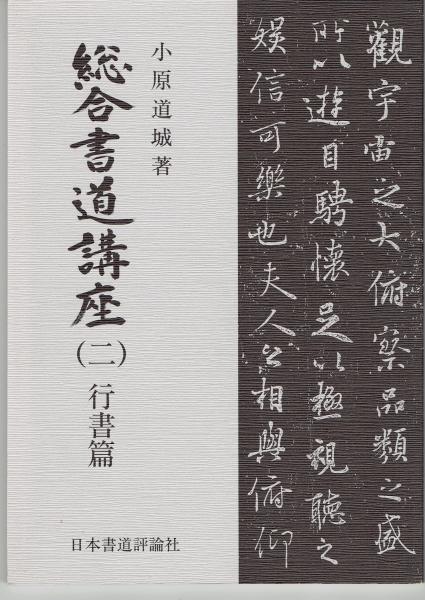 觀宇宙之大俯察品類之盛
所以遊目騁懷足以極視聽之
娛信可樂也夫人之相與俯仰
小原道城著
総合書道講座
(二)行書篇
日本書道評論社